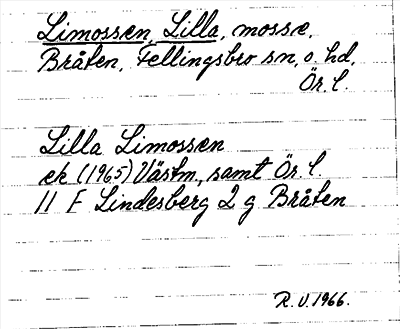 Limossen, Lilla, mosse,
Bråten, Fellingsbro sn, o. hd,
Ör. l.
Lilla Limossen
ek (1965) Västm, samt Ör. l.
11 F Lindesberg 2 g Bråten
R. V. 1966.